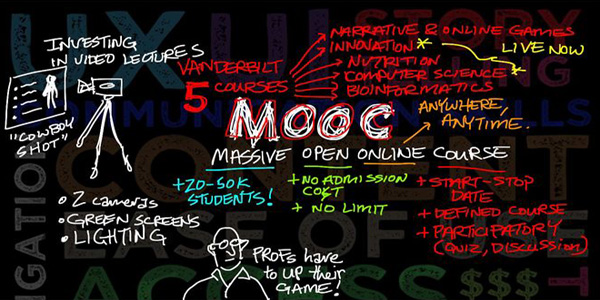 INVESTING
IN VIDEO LECTURES
"COWBOY
SHOT"
• 2 cameras
• GREEN SCREENS
• LIGHTING
VANDERBILT
5 COURSES
NARRATIVE & ONLINE GAMES
INNOVATION *
NUTRITION
COMPUTER SCIENCE *
BIOINFORMATICS
LIVE NOW
MOOC
ANYWHERE,
ANYTIME.
MASSIVE OPEN ONLINE COURSE
+20-50K
STUDENTS!
+ NO ADMISSION
COST
+ NO LIMIT
+ START-STOP
DATE
+ DEFINED COURSE
+ PARTICIPATORY
(QUIZ, DISCUSSION)
PROFS have
to UP their
GAME!
UX
UI
STORY
CONTENT
EASE OF USE
ACCESS
$$$